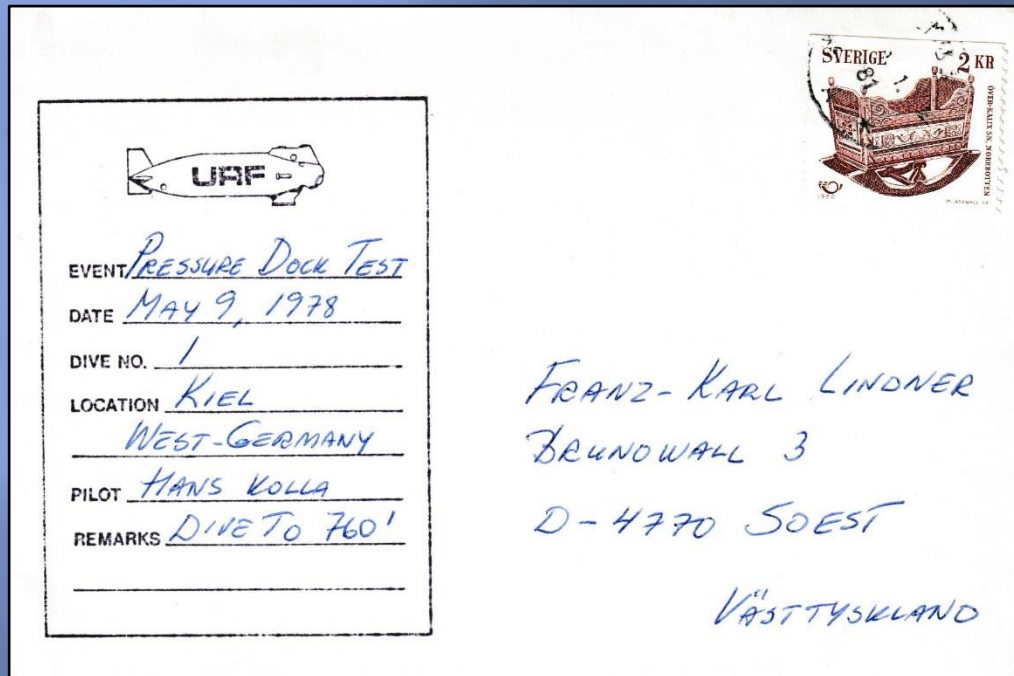 URF
EVENT PRESSURE DOCK TEST
DATE MAY 9, 1978
DIVE NO. 1
LOCATION KIEL
WEST-GERMANY
PILOT HANS KOLLA
REMARKS DIVE TO 760'
SVERIGE 2 KR
ÖVER-KALIX SN, NORRBOTTEN
1980
FRANZ-KARL LINDNER
BRUNOWALL 3
D-4770 SOEST
VÄSTTYSKLAND